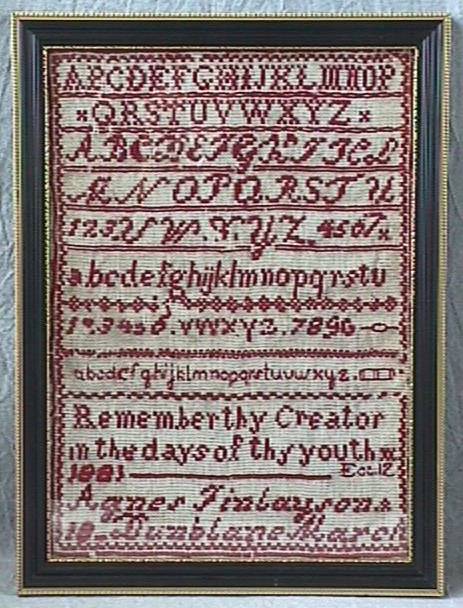 ABCDEFGHIJKLMNOP
*QRSTUVWXYZ*
ABCDEFGHIJKL
MNOPQRSTU
123VWXYZ4567*
abcdefghijklmnopqrstu
123456.vwxyz.7890
abcdefghijklmnopqrstuvwxyz.
Remember thy Creator
in the days of thy youth
1881 Ecc12
Agnes Finlayson
Dunblane March